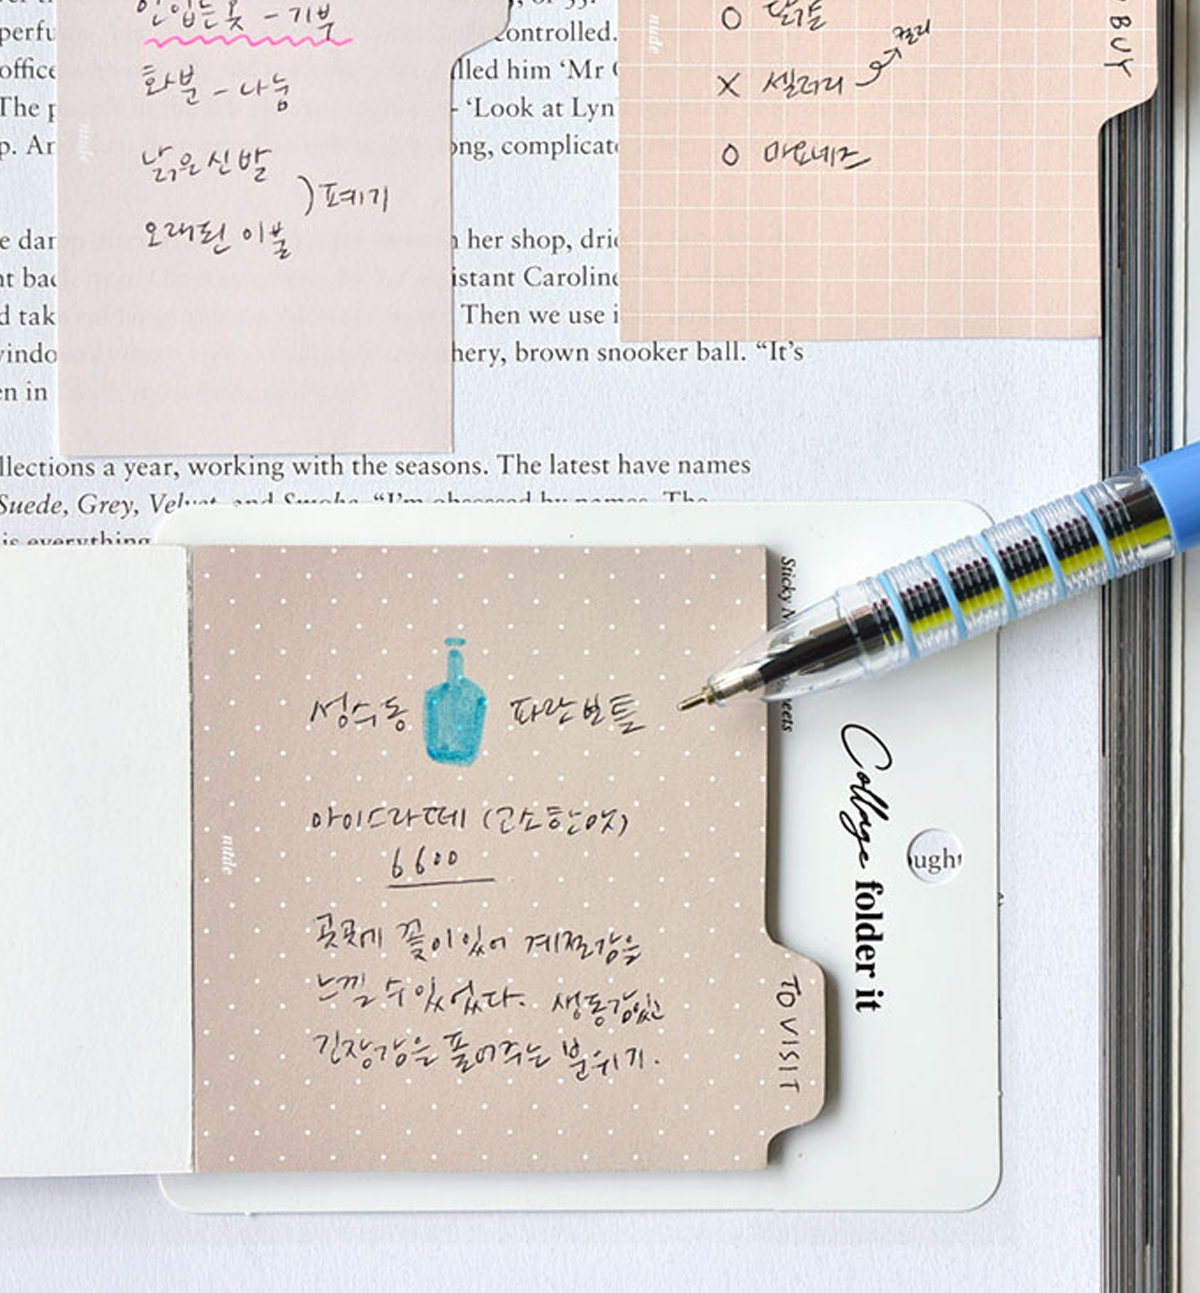 perfu
controlled.
office
lled him ‘Mr
The p
- ‘Look at Lyn
p. An
ong, complicat
e dam
n her shop, drie
nt bac
istant Caroline
d tak
Then we use i
vindo
hery, brown snooker ball. “It’s
en in
llections a year, working with the seasons. The latest have names
Suede, Grey, Velvet, and Smoke. “I’m obsessed by names. The
is everything
안입는옷 - 기부
화분 - 나눔
낡은신발
오래된 이불
) 폐기
nude
O 달걀
X 셀러리
컬리
O 마요네즈
nude
BUY
성수동 파란보틀
아이스라떼 (고소한맛)
6600
곳곳에 꽃이 있어 계절감을
느낄 수 있었다. 생동감있고
긴장감을 풀어주는 분위기.
nude
TO VISIT
Sticky
eets
Collage folder it
ught